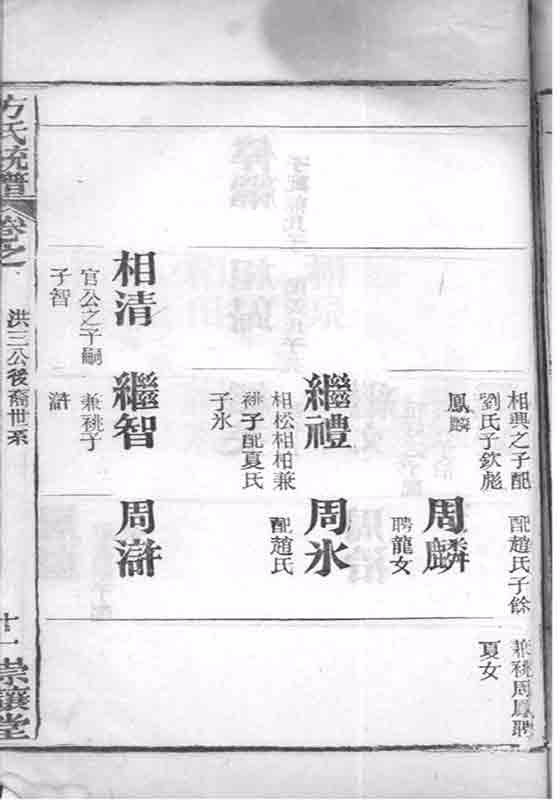 相興之子配
劉氏子欽彪
鳳麟
配趙氏子餘
兼祧周鳳聘
夏女
周麟
聘龍女
繼禮
相松相柏兼
祧子配夏氏
子氷
周氷
配趙氏
相清
官公之子嗣
子智
繼智
兼祧子
滸
周滸
方氏統譜
卷之一
洪三公後裔世系
十一
崇讓堂